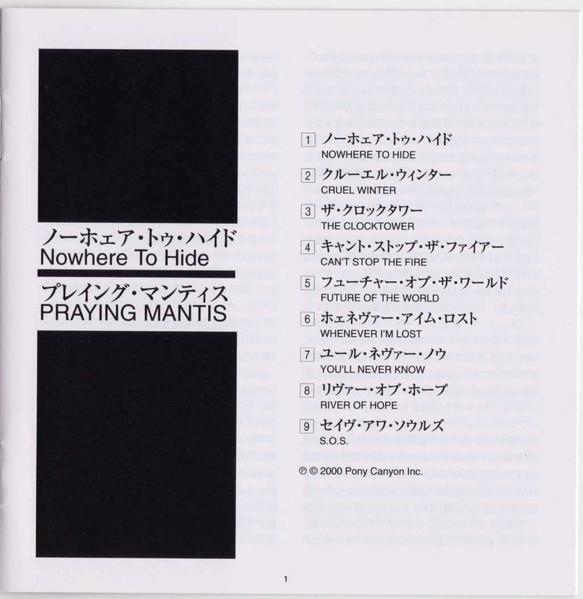 ノーホェア・トゥ・ハイド
Nowhere To Hide
プレイング・マンティス
PRAYING MANTIS
1 ノーホェア・トゥ・ハイド
NOWHERE TO HIDE
2 クルーエル・ウィンター
CRUEL WINTER
3 ザ・クロックタワー
THE CLOCKTOWER
4 キャント・ストップ・ザ・ファイアー
CAN'T STOP THE FIRE
5 フューチャー・オブ・ザ・ワールド
FUTURE OF THE WORLD
6 ホェネヴァー・アイム・ロスト
WHENEVER I'M LOST
7 ユール・ネヴァー・ノウ
YOU'LL NEVER KNOW
8 リヴァー・オブ・ホープ
RIVER OF HOPE
9 セイヴ・アワ・ソウルズ
S.O.S.
℗ © 2000 Pony Canyon Inc.
1